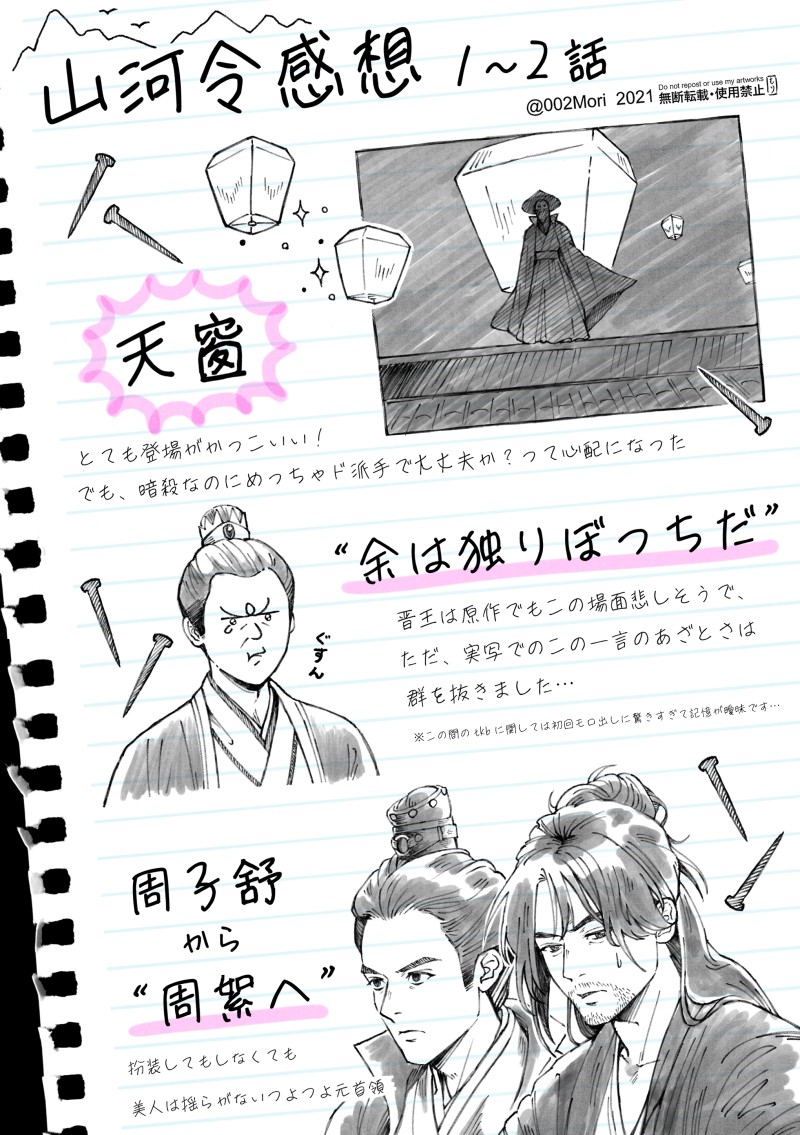 山河令感想 1~2話
Do not repost or use my artworks
@002Mori 2021 無断転載・使用禁止
もり
天窗
とても登場がかっこいい!
でも、暗殺なのにめっちゃド派手で大丈夫か?って心配になった
“余は独りぼっちだ”
晋王は原作でもこの場面悲しそうで、
ただ、実写でのこの一言のあざとさは
群を抜きました…
※この間のtkbに関しては初回モロ出しに驚きすぎて記憶が曖昧です…
ぐすん
周子舒
から
“周絮へ”
扮装してもしなくても
美人は揺らがないつよつよ元首領